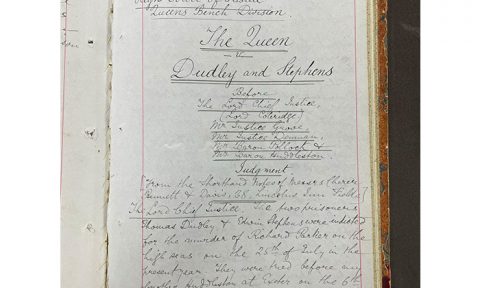 High Court of Justice
Queens Bench Division.
The Queen
v
Dudley and Stephens
Before
The Lord Chief Justice,
(Lord Coleridge)
Mr Justice Grove
Mr Justice Denman,
Mr Baron Pollock &
Mr Baron Huddleston.
Judgment
[From the Shorthand Notes of Messrs
Bunnett & Davis, 68, Lincolns Inn Fields]
The Lord Chief Justice The two prisoners
Thomas Dudley & Edwin Stephens were indicted
for the murder of Richard Parker on the
high seas on the 25th of July in the
present year. They were tried before my
brother Huddleston at Exeter on the 6th